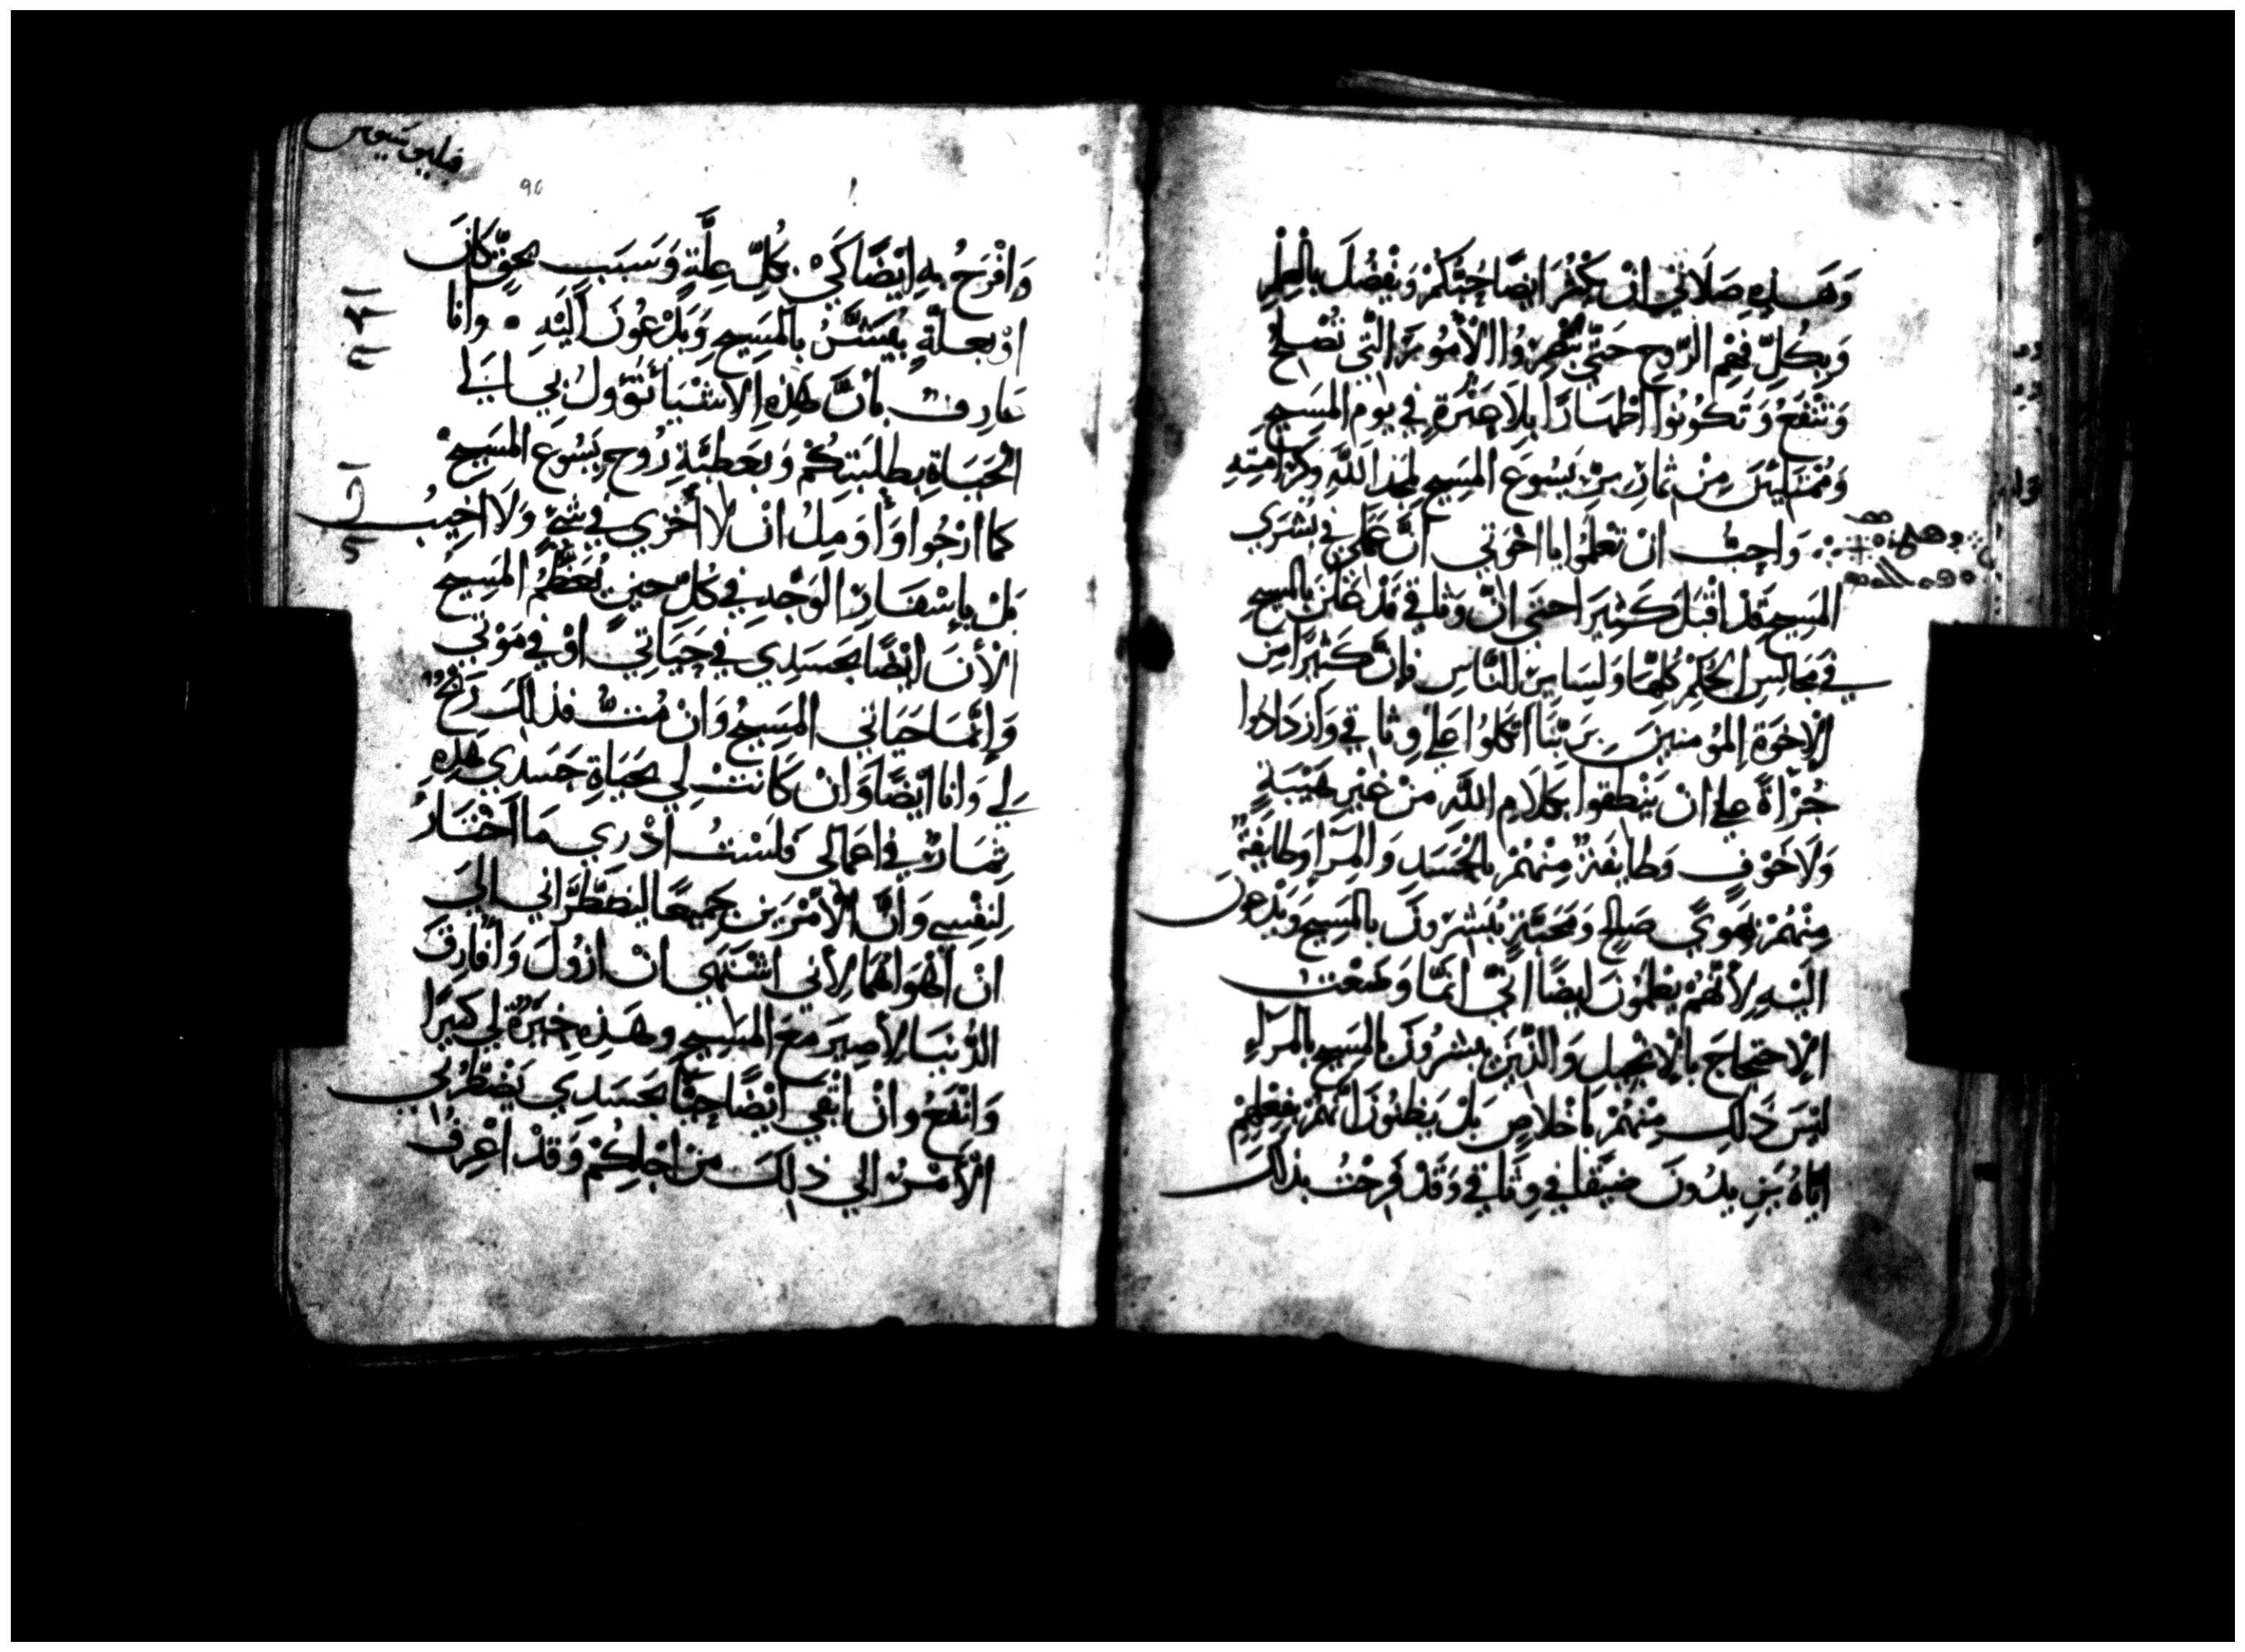 وَهَذِهِ صَلَاتي انْ يَكْثُرَ ايضًا حُبُّكُمْ وَيَفْضُلَ بالعِلْمِ
وَبِكُلِّ فَهْمِ الرّوحِ حَتَّي تُمَيِّزُوا الأُمُورَ الّتي تَصْلُحُ
وَتَنْفَعُ وَتَكُونُوا اطْهَارًا بِلا عَثرَةٍ في يَومِ المَسِيحِ
وَمُمْتَلِئينَ مِنْ ثمارِ بِرِّ يَسُوعَ المَسِيحِ لمَجدِ اللّهِ وَكَرَامَتِهِ
وَاحِبُّ انْ تَعْلَمُوا يا اخْوَتي أنَّ عَمَلي في بُشرَي
المَسِيحِ قَدْ اقْبَلَ كَثِيرًا حَتَّي انَّ وَثاقي قَدْ عَلَنَ بالمَسِيحِ
في مَجَالِسِ الحُكْمِ كُلِّهَا وَلِسَايرِ النّاسِ وَانَّ كَثيرًا مِنَ
الإخوَةِ المُؤمنينَ بِرَبّنَا اتّكَلُوا عَلى وثاقي وَازدَادُوا
جُرْأةً عَلى انْ يَنْطِقوا بكلامِ اللّهِ مِنْ غيرِ هَيْبَةٍ
وَلَا خَوْفٍ وَطايفَة مِنْهُمْ بالحَسَدِ وَالمِرَا وَطايفَة
مِنْهُمْ بهَوَيً صَالحٍ وَمَحَبَّةٍ يُبَشّرُونَ بالمَسِيحِ وَيَدْعونَ
اليْهِ لأنَّهُمْ يَعْلَمُونَ ايضًا انّي انّمَا وُضِعْتُ
الاحتجاجَ بالإنجيلِ وَالّذينَ يبشرُونَ بالمسِيحِ بالمِرَاءِ
ليْسَ ذَلِكَ مِنْهُمْ بإخلاصٍ بَلْ يَظنّونَ أنّهُمْ بِفِعْلِهِمْ
ايّاهُ يَزيدُونَ ضِيقًا في وِثَاقي وَقَدْ فَرِحْتُ بذلِكَ
فيليبوسيوس
90
وَافْرَحُ بهِ ايْضًا كَيْ بكُلّ عِلَّةٍ وَسَبَبٍ بحَقٍّ كَانَ
اوْ بعلّةٍ يُبَشَّرُ بالمَسِيحِ وَيَدْعُونَ الَيْهِ • وانا
عَارِفٌ بأنَّ هَذِهِ الاشْيَا تَؤولُ بي الَي
الحَيَاةِ بطلبَتِكُمْ وَبِعَطِيَّةِ رُوحِ يَسُوعَ المَسِيحِ
كما ارْجُوا وَأَومِلُ انْ لا أخزي في شَئ وَلَا اخِيبُ
بَلْ بإسْفَارِ الوَجْهِ في كُلِّ حِينٍ يُعَظَّمُ المَسِيحُ
الأنَ ايْضًا بجَسَدِي في حَيَاتي اوْ في مَوْتي
وَإنَّمَا حَيَاتي المَسِيحُ وَانْ مُتُّ فذلكَ رَبْحٌ
لي وَانا ايْضًا وَانْ كَانَتْ لي بحَيَاةِ جَسَدِي هَذِهِ
ثِمَارٌ في اعمالي فَلَسْتُ ادْرِي مَا اخْتَارُ
لِنَفْسِي وَانَّ الأَمْرَيْنِ جَميعًا ليَضْطَرَّاني الَي
انْ اهْوَاهُمَا لأني اشْتَهي انْ ازُولَ وَافَارِقَ
الدُّنْيَا لأصِيرَ مَعَ المَسِيحِ وهَذِهِ خيَرَةٌ لي كثيرًا
وَانْفَعُ وانْ ابْقي ايْضًا حَيًّا بجَسَدِي يَضْطَرُّني
الأَمْرُ الي ذلِكَ مِنْ اجْلِكُمْ وَقَدْ اعْرِفُ